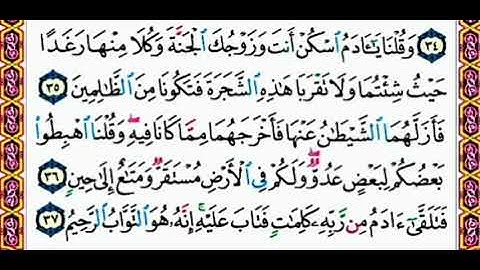 ٣٤ وَقُلْنَا يَـٰٓـَٔادَمُ ٱسْكُنْ أَنتَ وَزَوْجُكَ ٱلْجَنَّةَ وَكُلَا مِنْهَا رَغَدًا
حَيْثُ شِئْتُمَا وَلَا تَقْرَبَا هَـٰذِهِ ٱلشَّجَرَةَ فَتَكُونَا مِنَ ٱلظَّـٰلِمِينَ ٣٥
فَأَزَلَّهُمَا ٱلشَّيْطَـٰنُ عَنْهَا فَأَخْرَجَهُمَا مِمَّا كَانَا فِيهِ ۖ وَقُلْنَا ٱهْبِطُوا۟
بَعْضُكُمْ لِبَعْضٍ عَدُوٌّ ۖ وَلَكُمْ فِى ٱلْأَرْضِ مُسْتَقَرٌّ وَمَتَـٰعٌ إِلَىٰ حِينٍ ٣٦
فَتَلَقَّىٰٓ ءَادَمُ مِن رَّبِّهِۦ كَلِمَـٰتٍ فَتَابَ عَلَيْهِ ۚ إِنَّهُۥ هُوَ ٱلتَّوَّابُ ٱلرَّحِيمُ ٣٧